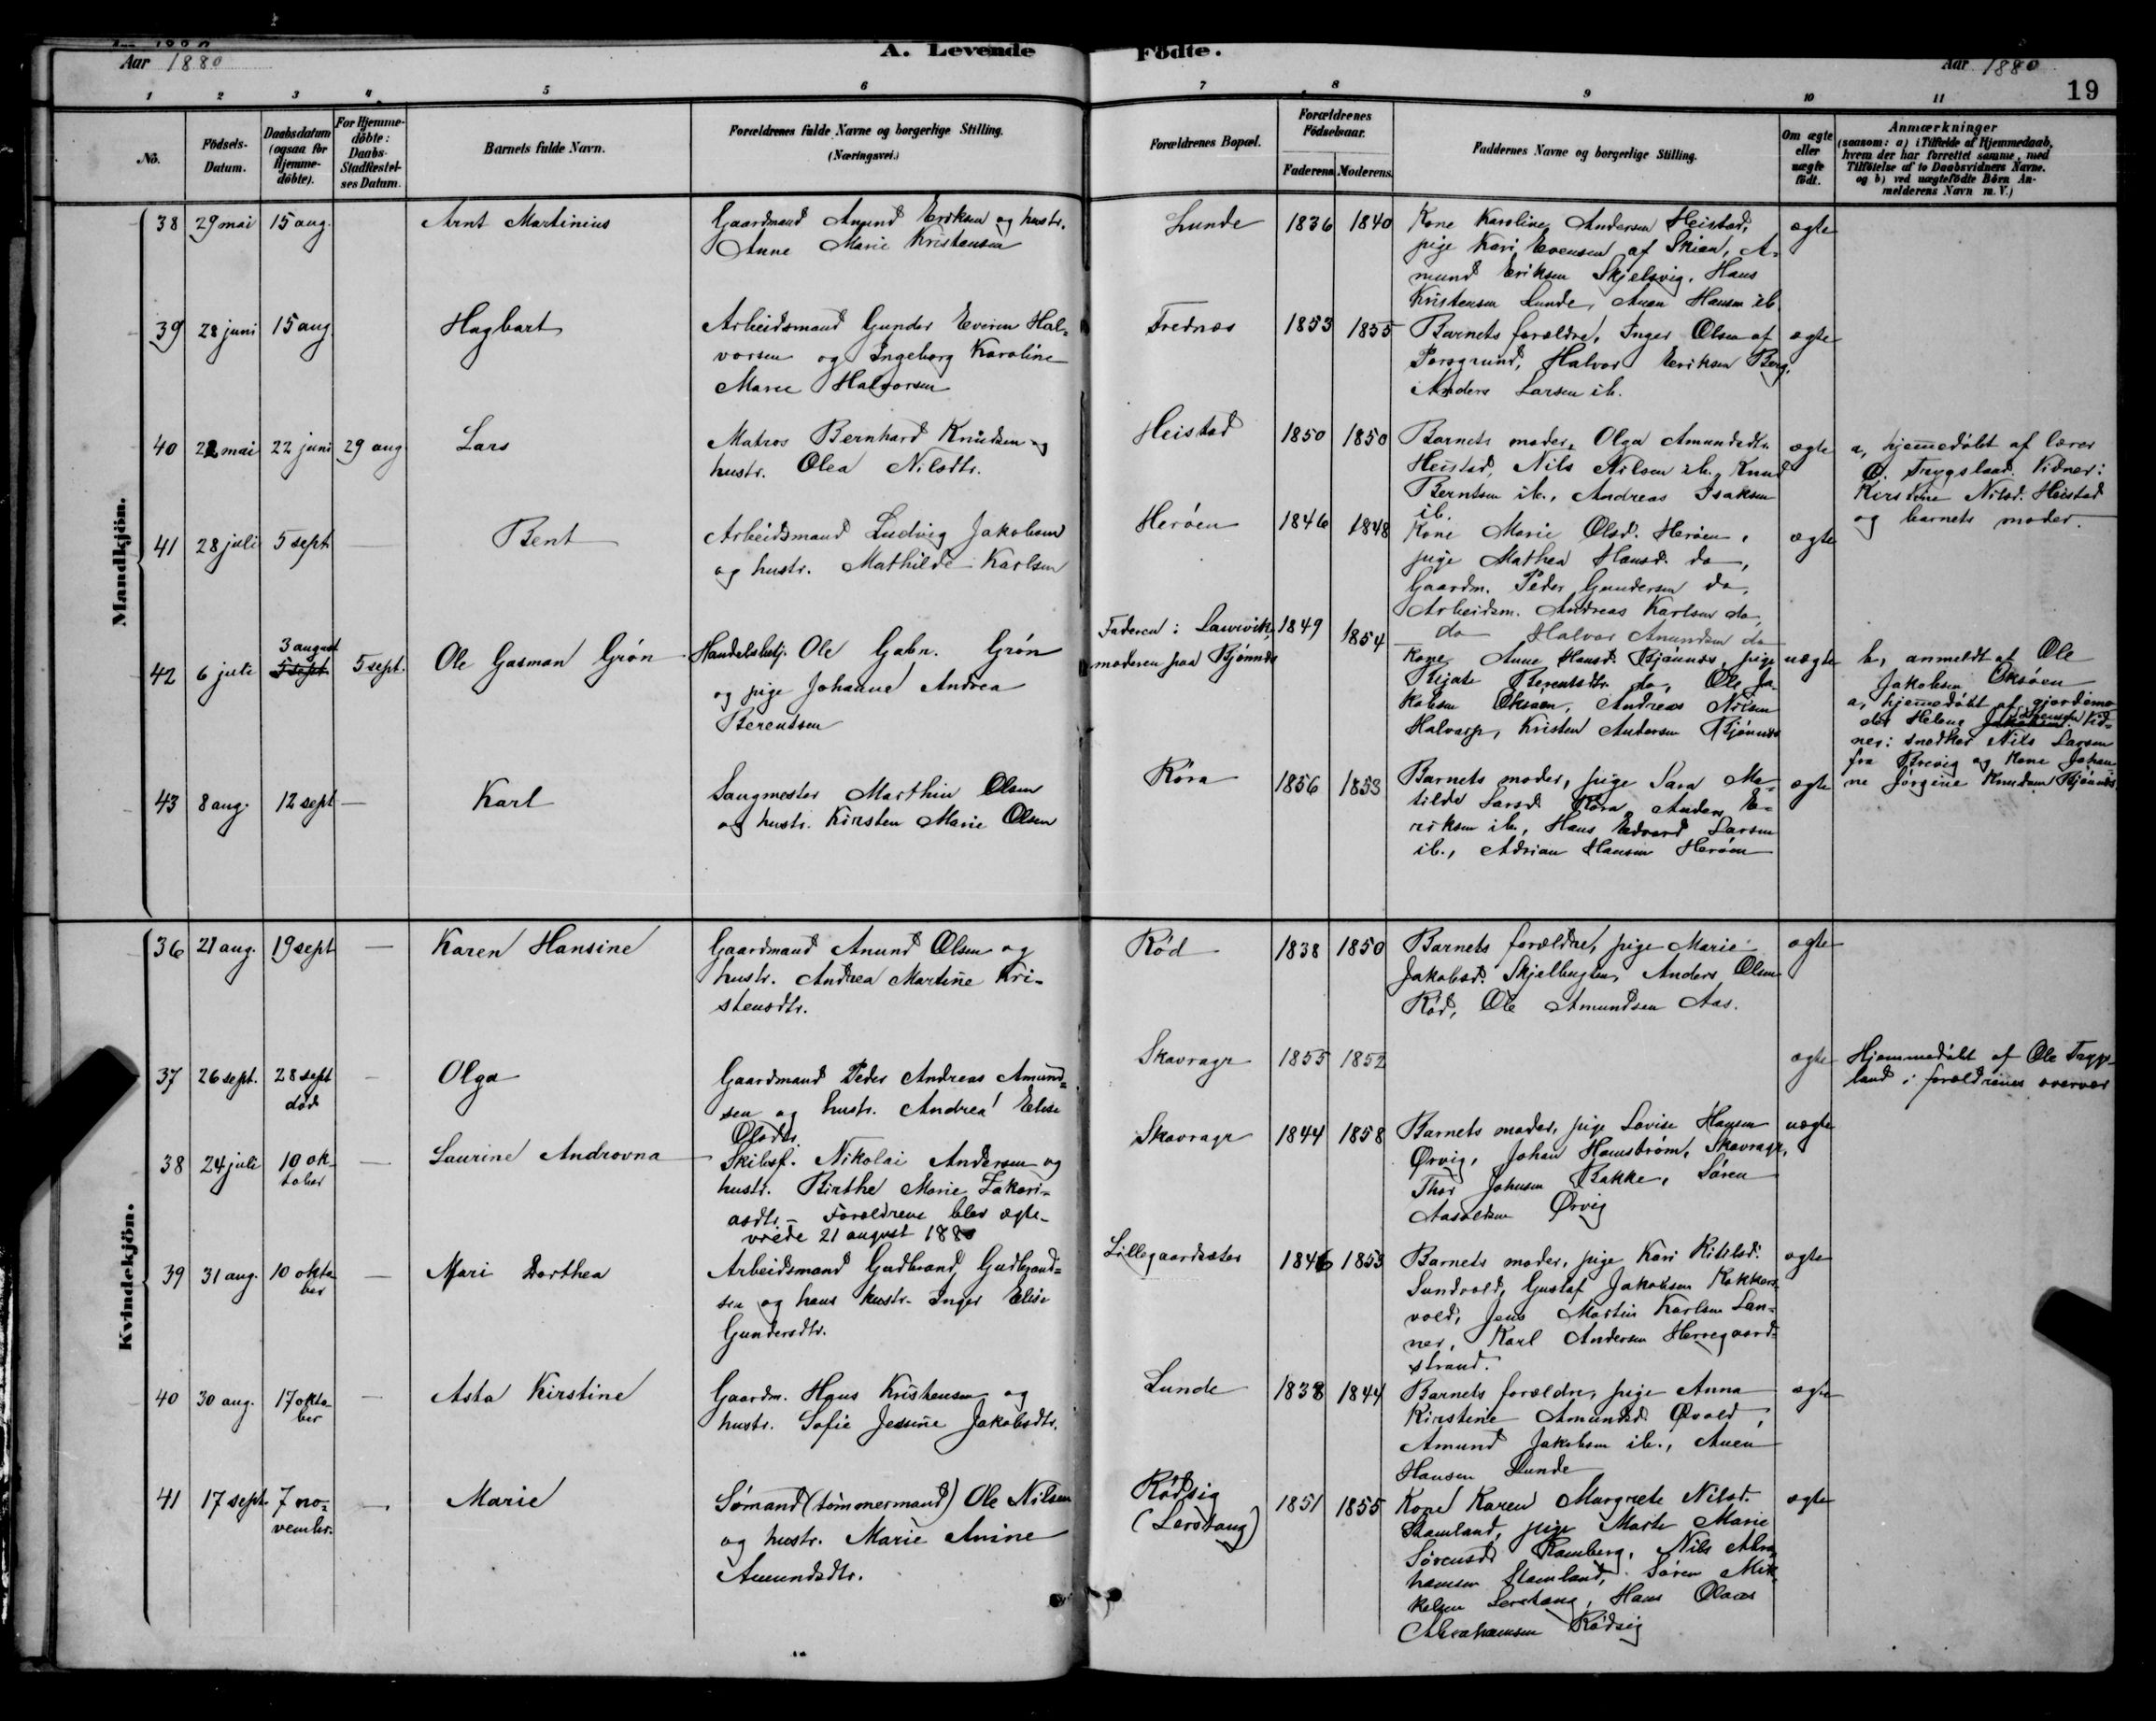 Aar 1880
A. Levende Födte.
Aar 1880
19
1 2 3 4 5 6 7 8 9 10 11
No.
Födsels-
Datum.
Daabsdatum
(ogsaa for
Hjemme-
döbte).
For Hjemme-
döbte:
Daabs-
Stadfæstel-
ses Datum.
Barnets fulde Navn.
Forældrenes fulde Navne og borgerlige Stilling.
(Næringsvei.)
Forældrenes Bopæl.
Forældrenes
Födselsaar.
Faderens. Moderens.
Faddernes Navne og borgerlige Stilling.
Om ægte
eller
uægte
födt.
Anmærkninger
(saasom: a) i Tilfælde af Hjemmedaab,
hvem der har forrettet samme, med
Tilföielse af to Daabsvidners Navne.
og b) ved uægtefödte Börn An-
melderens Navn m. V.)
Mandkjön.
38 29 mai 15 aug. Arnt Martinius
Gaardmand Anund Eriksen og hustr.
Anne Marie Kristensen
Lunde 1836 1840
Kone Karoline Andersen Heistad,
pige Kari Evensen af Skien, A-
mund Eriksen Skjelsvig, Hans
Kristensen Lunde, Hansen ib.
ægte
39 28 juni 15 aug. Hagbart
Arbeidsmand Gunder Hal-
vorsen og Ingeborg Karoline
Marie Halvorsen
Frednæs 1853 1855
Barnets forældre, Inger Olsen af
Porsgrund, Halvor Eriksen Berg,
Anders Larsen ib.
ægte
40 22 mai 22 juni 29 aug. Lars
Matros Bernhard Knudsen og
hustr. Olea Nilsdtr.
Heistad 1850 1850
Barnets moder, Olga Amundsdtr.
Heistad, Nils Nilsen ib., Knud
Berntsen ib., Andreas Isaksen
ib.
ægte
a, hjemmedøbt af lærer
O. Trygslaad. Vidner:
Kirstine Nilsd. Heistad
og barnets moder.
41 28 juli 5 sept. — Bent
Arbeidsmand Ludvig Jakobsen
og hustr. Mathilde Karlsen
Herøen 1846 1848
Kone Marie Olsd. Herøen,
pige Mathea Hansd. do,
Gaardm. Peder Gundersen do,
Arbeidsm. Andreas Karlsen do,
do Halvor Amundsen do
ægte
42 6 juli 3 august 5 sept 5 sept. Ole Gasman Grøn
Handelsbetj. Ole Gabr. Grøn
og pige Johanne Andrea
Berentsen
Faderen i Laurvik,
moderen paa Bjønnes
1849 1854
Kone Anne Hansd. Bjønnes, pige
Berentsdtr. do, Ole Ja-
kobsen Oksøen, Andreas Nilsen
Halvarp, Kristen Andersen Bjønnes
uægte
b, anmeldt af Ole
Jakobsen Oksøen
a, hjemmedøbt af gjordemo-
der Helene Vid-
ner: snedker Nils Larsen
fra Brevig og kone Johan-
ne Jørgine Knudsen Bjønnes
43 8 aug. 12 sept — Karl
Saugmester Marthin Olsen
og hustr. Kirsten Marie Olsen
Røra 1856 1853
Barnets moder, pige Sara Ma-
tilde Larsd. Røra, Anders E-
riksen ib., Hans Edvard Larsen
ib., Adrian Hansen Herøen
ægte
Kvindekjön.
36 21 aug. 19 sept — Karen Hansine
Gaardmand Anund Olsen og
hustr. Andrea Martine Kri-
stensdtr.
Rød 1838 1850
Barnets forældre, pige Marie
Jakobsd. Skjelbugten, Anders Olsen
Rød, Ole Amundsen Aas.
ægte
37 26 sept. 28 sept død — Olga
Gaardmand Peder Andreas Amund-
sen og hustr. Andrea Elise
Olsdtr.
Skavrager 1855 1852
ægte
Hjemmedøbt af Ole Tryggs-
land i forældrenes overvær
38 24 juli 10 ok-
tober — Laurine Androvna
Skibsf. Nikolai Andersen og
hustr. Birthe Marie Zakari-
asdtr. – Forældrene blev ægte-
viede 21 august 1880
Skavrager 1844 1858
Barnets moder, pige Lovise Hansen
Ørvig, Johan Hamstrøm, Skavrager,
Thor Johnsen Bakke, Søren
Aasoldsen Ørvig
uægte
39 31 aug. 10 okto-
ber — Mari Dorthea
Arbeidsmand Gudbrand Gudbrand-
sen og hans hustr. Inger Elise
Gundersdtr.
Lillegaardsæter 1846 1853
Barnets moder, pige Kari Kitilsd.
Sundvold, Gustaf Jakobsen Kokkers-
vold, Jens Martin Karlsen Lan-
ner, Karl Andersen Herregaard-
strand.
ægte
40 30 aug. 17 okto-
ber — Asta Kirstine
Gaardm. Hans Kristensen og
hustr. Sofie Jessine Jakobsdtr.
Lunde 1838 1844
Barnets forældre, pige Anna
Kirstine Amundsd. Øvald,
Amund Jakobsen ib., Auen
Hansen Lunde
ægte
41 17 sept. 7 no-
vembr. — Marie
Sømand (tømmermand) Ole Nilsen
og hustr. Marie Anine
Amundsdtr.
Rødsig
(Lerstang)
1851 1855
Kone Karen Margrete Nilsd.
Stamland, pige Marte Marie
Sørensd. Ramberg, Nils Abra-
hamsen Stamland, Søren Mik-
kelsen Lerstang, Hans Olaus
Abrahamsen Rødsig
ægte